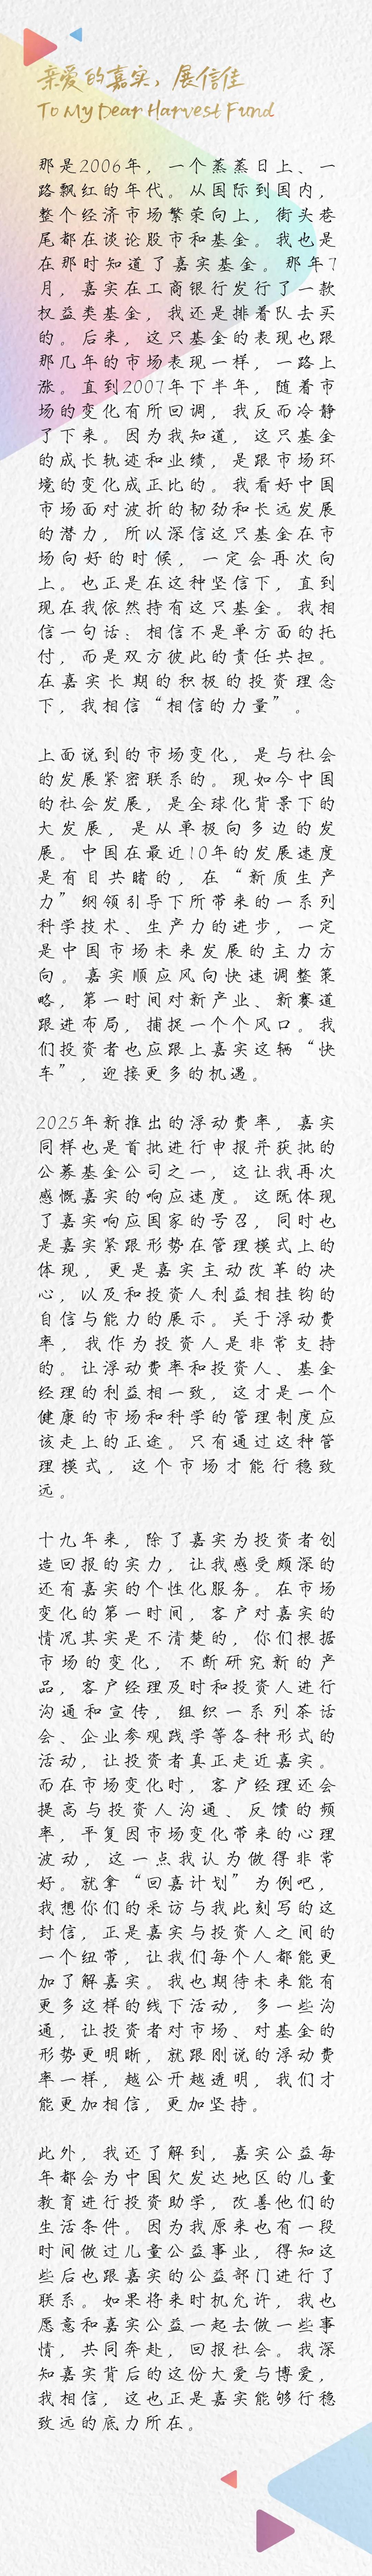 亲爱的嘉实，展信佳
To My Dear Harvest Fund
那是2006年，一个蒸蒸日上、一
路飘红的年代。从国际到国内，
整个经济市场繁荣向上，街头巷
尾都在谈论股市和基金。我也是
在那时知道了嘉实基金。那年7
月，嘉实在工商银行发行了一款
权益类基金，我还是排着队去买
的。后来，这只基金的表现也跟
那几年的市场表现一样，一路上
涨。直到2007年下半年，随着市
场的变化有所回调，我反而冷静
了下来。因为我知道，这只基金
的成长轨迹和业绩，是跟市场环
境的变化成正比的。我看好中国
市场面对波折的韧劲和长远发展
的潜力，所以深信这只基金在市
场向好的时候，一定会再次向
上。也正是在这种坚信下，直到
现在我依然持有这只基金。我相
信一句话：相信不是单方面的托
付，而是双方彼此的责任共担。
在嘉实长期的积极的投资理念
下，我相信“相信的力量”。
上面说到的市场变化，是与社会
的发展紧密联系的。现如今中国
的社会发展，是全球化背景下的
大发展，是从单极向多边的发
展。中国在最近10年的发展速度
是有目共睹的，在“新质生产
力”纲领引导下所带来的一系列
科学技术、生产力的进步，一定
是中国市场未来发展的主力方
向。嘉实顺应风向快速调整策
略，第一时间对新产业、新赛道
跟进布局，捕捉一个个风口。我
们投资者也应跟上嘉实这辆“快
车”，迎接更多的机遇。
2025年新推出的浮动费率，嘉实
同样也是首批进行申报并获批的
公募基金公司之一，这让我再次
感慨嘉实的响应速度。这既体现
了嘉实响应国家的号召，同时也
是嘉实紧跟形势在管理模式上的
体现，更是嘉实主动改革的决
心，以及和投资人利益相挂钩的
自信与能力的展示。关于浮动费
率，我作为投资人是非常支持
的。让浮动费率和投资人、基金
经理的利益相一致，这才是一个
健康的市场和科学的管理制度应
该走上的正途。只有通过这种管
理模式，这个市场才能行稳致
远。
十九年来，除了嘉实为投资者创
造回报的实力，让我感受颇深的
还有嘉实的个性化服务。在市场
变化的第一时间，客户对嘉实的
情况其实是不清楚的，你们根据
市场的变化，不断研究新的产
品，客户经理及时和投资人进行
沟通和宣传，组织一系列茶话
会、企业参观践学等各种形式的
活动，让投资者真正走近嘉实。
而在市场变化时，客户经理还会
提高与投资人沟通、反馈的频
率，平复因市场变化带来的心理
波动，这一点我认为做得非常
好。就拿“回嘉计划”为例吧，
我想你们的采访与我此刻写的这
封信，正是嘉实与投资人之间的
一个纽带，让我们每个人都能更
加了解嘉实。我也期待未来能有
更多这样的线下活动，多一些沟
通，让投资者对市场、对基金的
形势更明晰，就跟刚说的浮动费
率一样，越公开越透明，我们才
能更加相信，更加坚持。
此外，我还了解到，嘉实公益每
年都会为中国欠发达地区的儿童
教育进行投资助学，改善他们的
生活条件。因为我原来也有一段
时间做过儿童公益事业，得知这
些后也跟嘉实的公益部门进行了
联系。如果将来时机允许，我也
愿意和嘉实公益一起去做一些事
情，共同奔赴，回报社会。我深
知嘉实背后的这份大爱与博爱，
我相信，这也正是嘉实能够行稳
致远的底力所在。